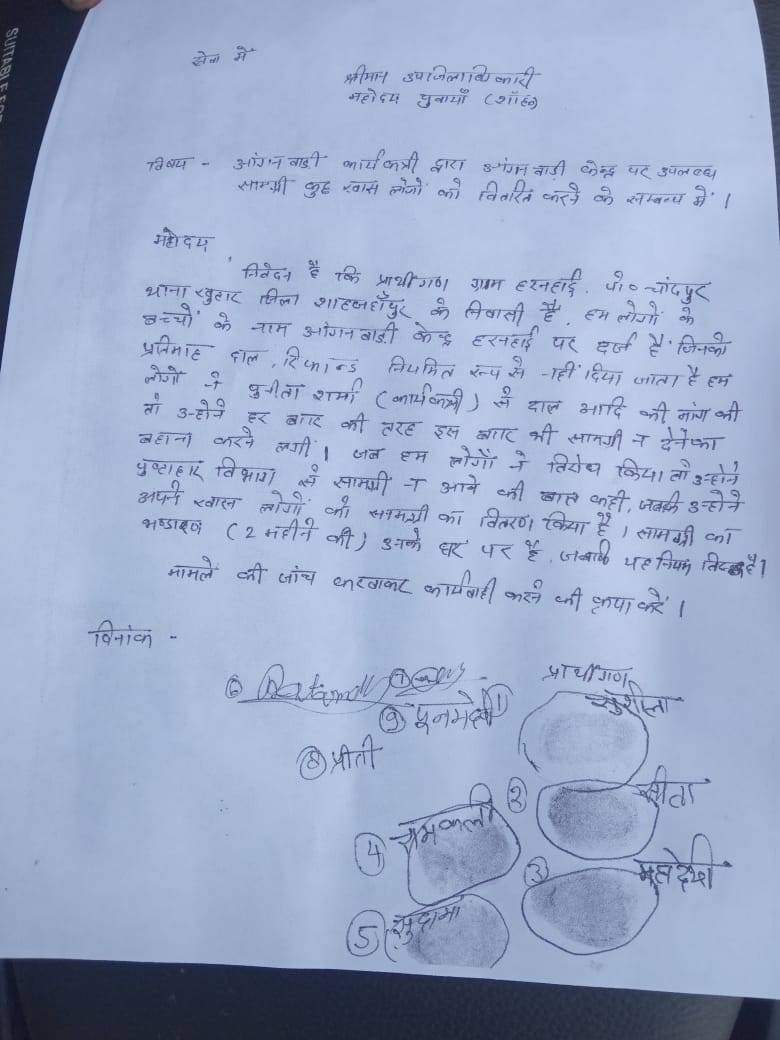 सेवा में
श्रीमान उपजिलाधिकारी
महोदय पुवायाँ (शाँह०)
विषय - आंगनबाडी कार्यकत्री द्वारा आंगनबाड़ी केन्द्र पर उपलब्ध
सामग्री कुछ खास लोगों को वितरित करने के सम्बन्ध में ।
महोदय,
निवेदन है कि प्रार्थीगण ग्राम हरनहाई, पो० चांदपुर
थाना खुटार जिला शाहजहाँपुर के निवासी है, हम लोगों के
बच्चों के नाम आंगनबाडी केन्द्र हरनहाई पर दर्ज है जिनको
प्रतिमाह दाल, रिफाइन्ड नियमित रूप से नहीं दिया जाता है हम
लोगों ने पुनीता शर्मा (कार्यकत्री) से दाल आदि की मांग की
तो उन्होने हर बार की तरह इस बार भी सामग्री न देनेका
बहाना करने लगीं । जब हम लोगों ने विरोध किया तो उन्होने
पुष्टाहार विभाग से सामग्री न आने की बात कही, जबकि उन्होने
अपने खास लोगों को सामग्री का वितरण किया है । सामग्री का
भण्डारण (2 महीने की) उनके घर पर है, जबकि यह नियम विरुद्ध है।
मामले की जांच करवाकर कार्यवाही करने की कृपा करें ।
दिनांक -
प्रार्थीगण
सुशीला
⑥ ⑦
⑨ पूनमदेवी
⑧ प्रीती
② सीता
④ रामकली
③ महादेवी
⑤ सुदामा